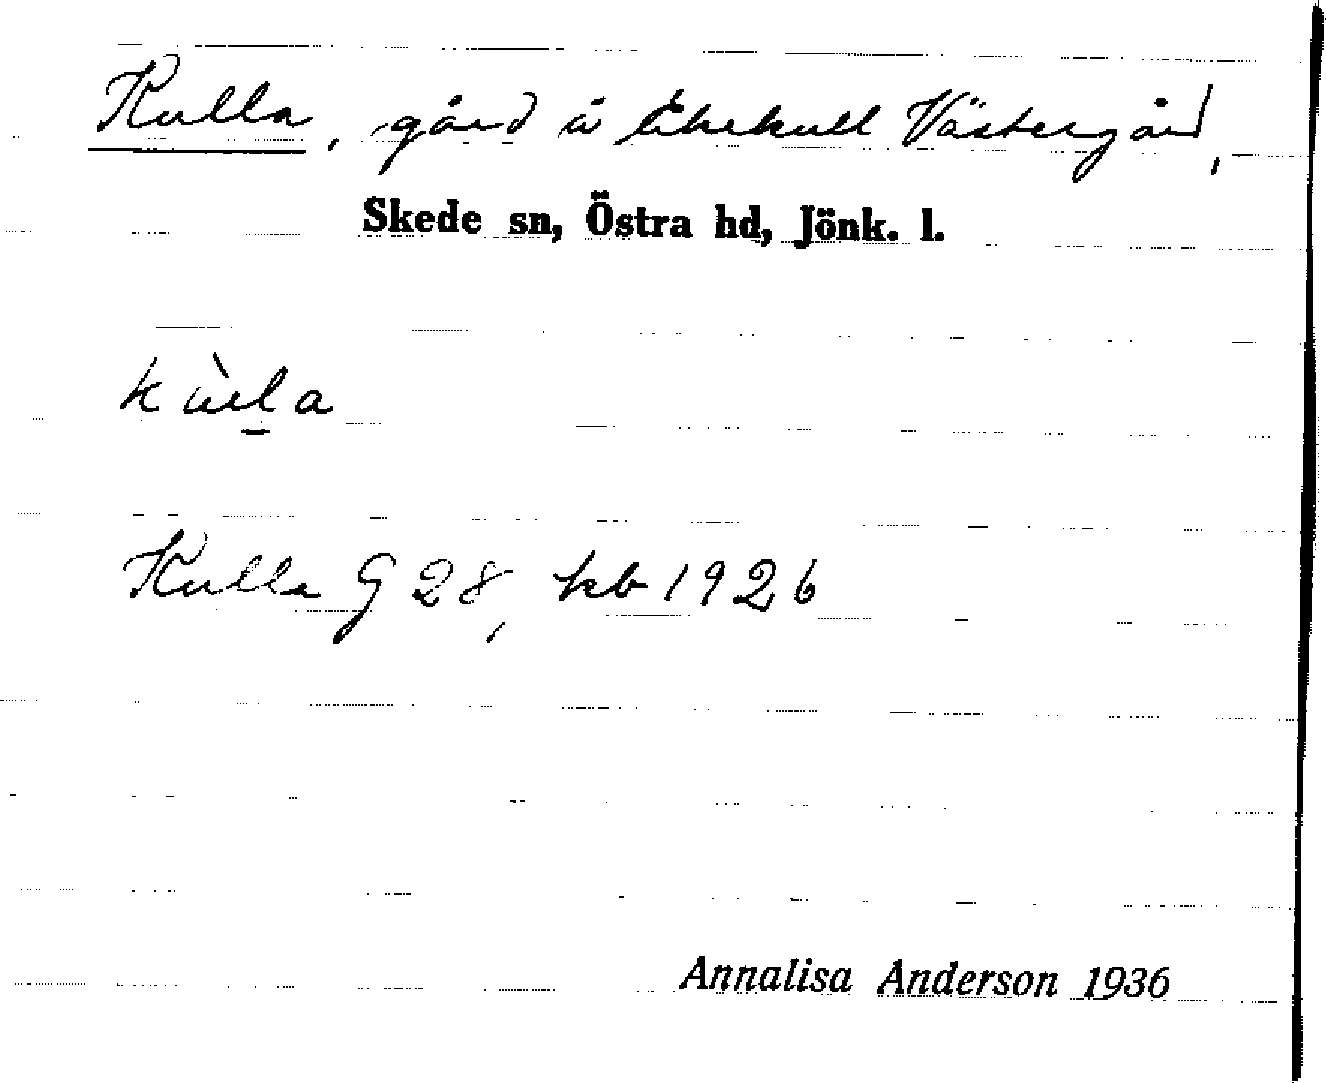 Kulla, gård å Ekekull Västergård,
Skede sn, Östra hd, Jönk. l.
kùl̲a
Kulla G 28, kb 1926
Annalisa Anderson 1936